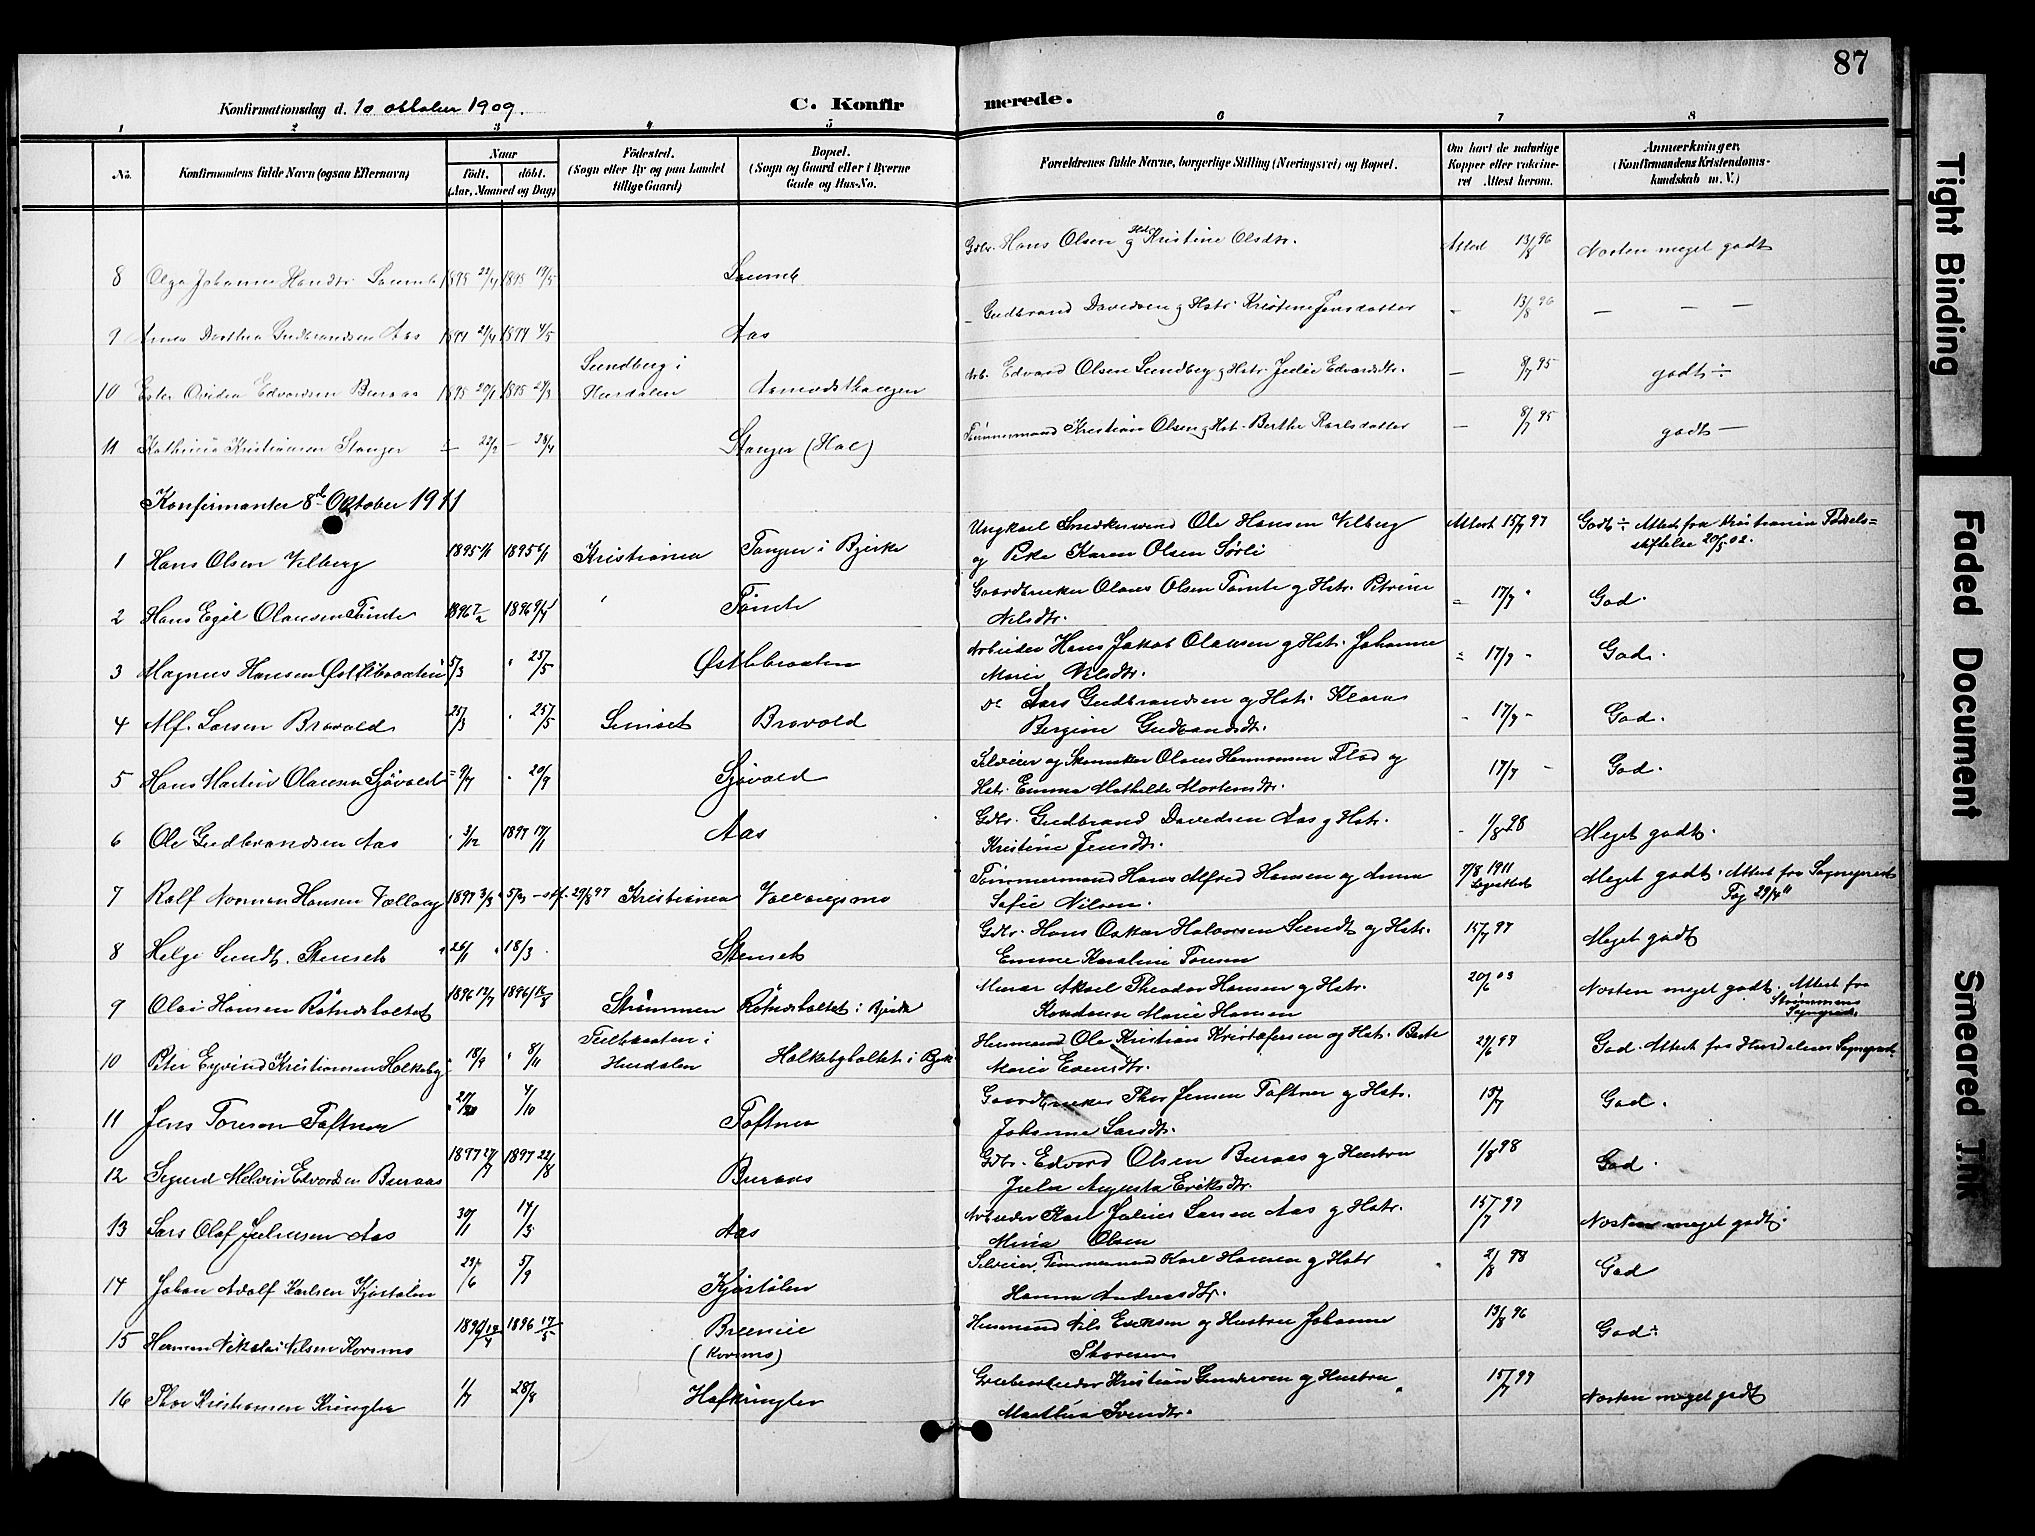 87
Konfirmationsdag d. 10 oktober 1909.
C. Konfir merede.
1 2 3 4 5 6 7 8
No.
Konfirmandens fulde Navn (ogsaa Efternavn)
Naar
födt. döbt.
(Aar, Maaned og Dag)
Födested.
(Sogn eller By og paa Landet
tillige Gaard)
Bopæl.
(Sogn og Gaard eller i Byerne
Gade og Hus-No.
Forældrenes fulde Navne, borgerlige Stilling (Næringsvei) og Bopæl.
Om havt de naturlige
Kopper eller vaccine-
ret Attest herom.
Anmærkninger,
(Konfirmandens Kristendoms-
kundskab m. V.)
8 Olga Johanne Hansdtr. 1895 22/4 1895 19/5 Gdbr. Hans Olsen og Hstr. Kristine Olsdtr. Attest 13/8 96 Næsten meget godt
9 Anna Dorthea Gudbrandsen Aas 1894 4/5 Aas – Gudbrand Davidsen og Hstr. Kristine Jensdatter – 13/8 96 – – –
10 Edvardsen Buraas 1895 Sundberg i
Hurdalen Arb. Edvard Olsen Sundberg og Hstr. Julie Edvardsdtr. – 8/7 95 godt ÷
11 Kathinia Kristiansen Stanger – 22/2 – 28/4 Stanger (Hol) Tømmermand Kristian Olsen og Hst. Berthe Karlsdatter – 8/7 95 godt –
Konfirmanter 8de Oktober 1911
1 Hans Olsen Vilberg 1895 1895 Kristiania Tangen i Bjerke Ungkarl Snedkersvend Ole Hansen Vilberg
og Pike Karen Olsen Sørli Attest 15/7 97 Godt ÷ Attest fra Kristiania Fødsels=
stiftelse 20/5 02.
2 Hans Egil Olausen Tömte 1896 1896 Tömte Gaardbruker Olaus Olsen Tömte og Hstr. Petrine
Nilsdtr. 17/7 God.
3 Magnus Hansen Østlibraaten 5/3 25/5 Østlibraaten Arbeider Hans Jakob Olausen og Hstr. Johanne
Marie Nilsdtr. 17/7 – God.
4 Alf Larsen Bravold 25/3 25/5 Bravold Lars Gudbrandsen og Hstr. Klara
Bergine Gudbrandsdtr. 17/7 – God.
5 Hans Martin Olausen Sjøvold 9/7 20/9 Sjøvold Selveier og Olaus Hermansen Flod og
Hstr. Emma Mathilde Mortensdtr. 17/7 – God.
6 Ole Gudbrandsen Aas 3/12 1897 17/1 Aas Gdbr. Gudbrand Davidsen Aas og Hstr.
Kristine Jensdtr. 1/8 98 Meget godt.
7 Rolf Norman Hansen 1897 Kristiania Tømmermand Hans Alfred Hansen og Anna
Sofie Nilsen. 7/8 1911
Lægeattest Meget godt. Attest fra Sogneprest
8 Helge Sundt. Stenseth 26/1 18/3 Stenseth Gdbr. Hans Oskar Halvorsen Sundt og Hstr.
Emma Karoline 15/7 97 Meget godt
9 Olai Hansen Røtnesholtet 1896 12/7 1896 16/8 Strømmen Røtnesholtet i Bjerke Murer Aksel Theodor Hansen og Hstr.
Konstanse Marie Hansen 20/6 03 Næsten meget godt. Attest fra
Strømmens
Sogneprest.
10 Peter Eyvind Kristiansen Holkeby 18/9 8/11
Hurdalen Holkebyholtet i Bjerke Husmand Ole Kristian Kristofersen og Hstr. Berte
Marie Evensdtr. 29/6 97 God. Attest fra Hurdalens Sogneprest
11 Jens Toresen Toftner 4/10 Toftner Gaardbruker Thor Jensen Toftner og Hstr.
Johanne Larsdtr. 15/7 God.
12 Sigurd Melvin Edvardsen Buraas 1897 27/7 1897 22/8 Buraas Gdbr. Edvard Olsen Buraas og Hustru
Julie Augusta Eriksdtr. 1/8 98 God.
13 Lars Olaf Juliussen Aas 30/1 14/3 Aas Arbeider Karl Julius Larsen Aas og Hstr.
Olsen 15/7 97 Næsten meget godt.
14 Johan Adolf Karlsen Kjøstolen 29/6 5/9 Kjøstolen Selveier, Tømmermand Karl Hansen og Hstr
Hanna Andreasdtr. 2/8 98 God
15 Herman Nikolai Nilsen Korsmo 1896 1896 17/5
(Korsmo) Husmand Nils Eriksen og Hustru Johanne
Thoresen 13/8 96 God ÷
16 Thor Kristiansen Kringler 1/7 28/8 Hofkringler Grubearbeider Kristian Gundersen og Hustru
Mathea Svendtr. 15/7 97 Næsten meget godt
Tight Binding
Faded Document
Smeared Ink